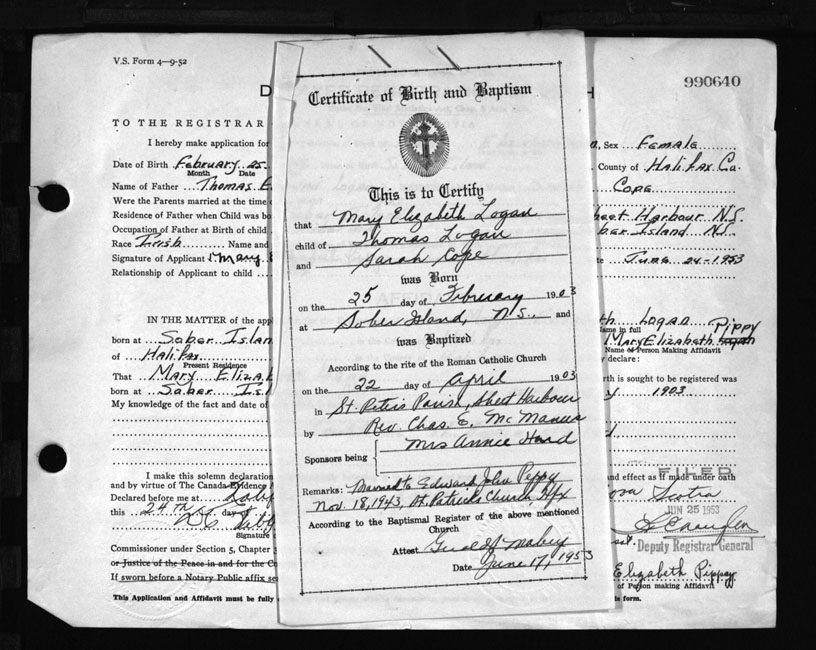 V.S. Form 4—9-52
990640
D
H
TO THE REGISTRAR
I hereby make application for
Sex Female
Date of Birth February 25
Month Date
County of Halifax Co.
Name of Father Thomas E
Cope
Were the Parents married at the time
Residence of Father when Child was bo
Harbour N.S.
Occupation of Father at Birth of child
Island N.S.
Race Irish Name and
Signature of Applicant Mary E
Date June 24-1953
Relationship of Applicant to child
IN THE MATTER of the app
th Logan Pippy
Name in full
born at Sober Islan
Mary Elizabeth Logan
Name of Person Making Affidavit
of Halifax
declare:
Present Residence
That Mary Elizab
th is sought to be registered was
born at Sober Is
1903
My knowledge of the fact and date of
I make this solemn declaration
and effect as if made under oath
and by virtue of The Canada Evidence
FILED
Declared before me at
Nova Scotia
this 24th day of
JUN 25 1953
Signature
Deputy Registrar General
Commissioner under Section 5, Chapter
or Justice of the Peace in and for the Co
Elizabeth Pippy
If sworn before a Notary Public affix se
of Person making Affidavit
This Application and Affidavit must be fully
is form.
Certificate of Birth and Baptism
This is to Certify
that Mary Elizabeth Logan
child of Thomas Logan
and Sarah Cope
was Born
on the 25 day of February 1903
at Sober Island, N.S. and
was Baptized
According to the rite of the Roman Catholic Church
on the 22 day of April 1903
in St. Peters Parish, Sheet Harbour
by Rev. Chas. E. McManus
Mrs Annie Hard
Sponsors being
Remarks: Married to Edward John Peppy
Nov. 18, 1943, St. Patricks Church, Hfx
According to the Baptismal Register of the above mentioned
Church
Attest
Date June 17, 1953